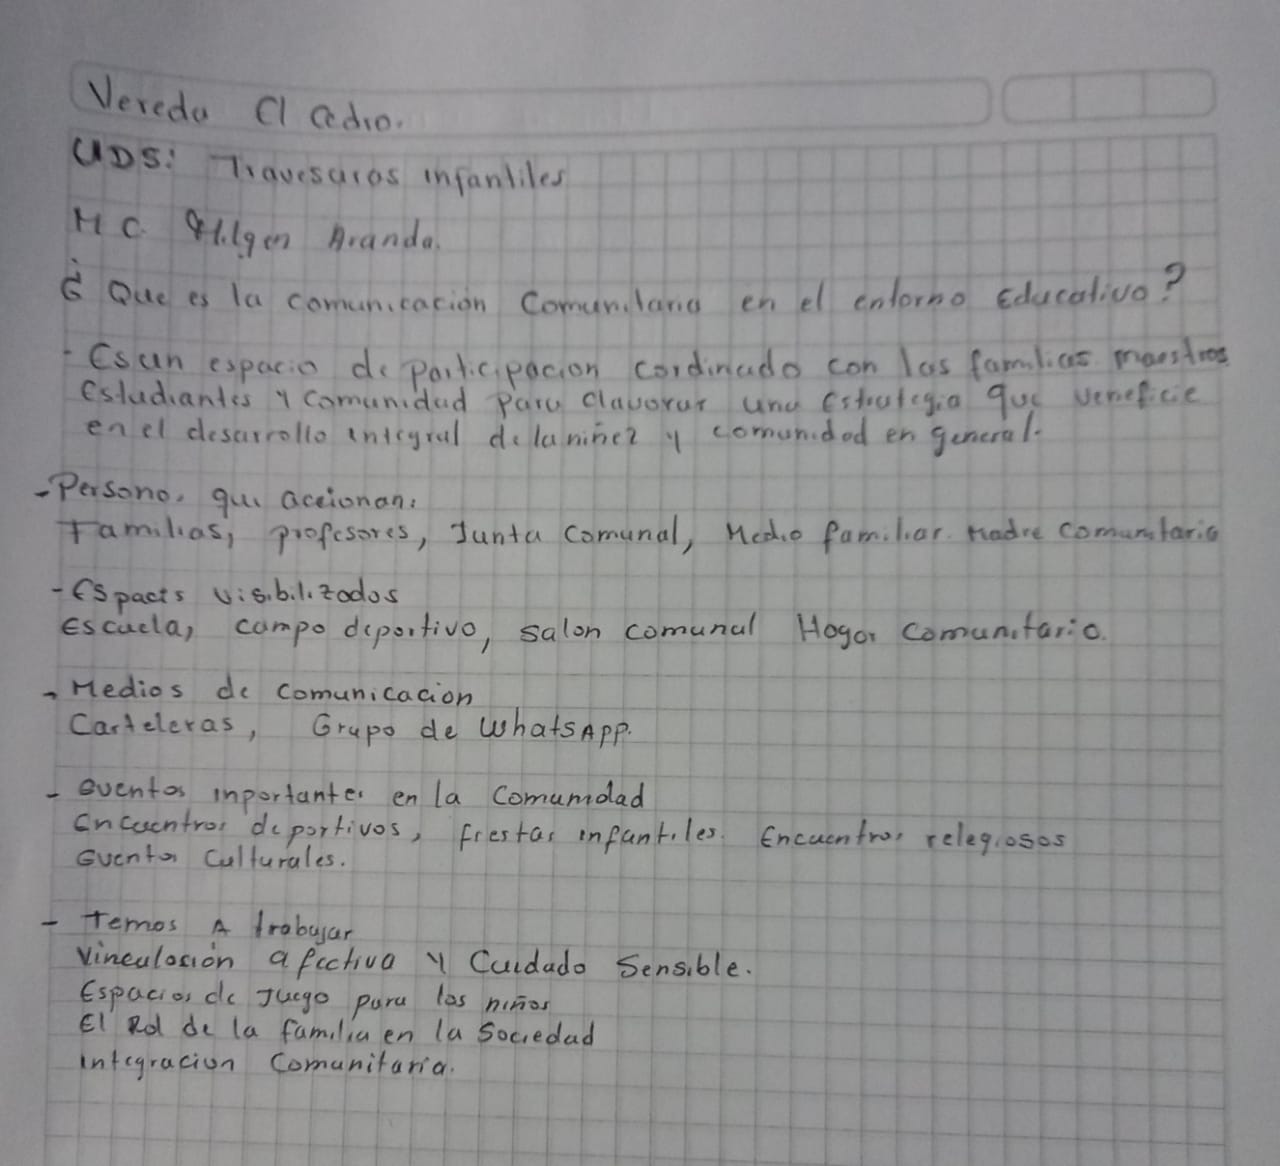 Vereda El Cedro.
UDS: Travesuras infantiles
M C. Hilgen Aranda.
¿ Que es la comunicación Comunitaria en el entorno Educativo?
- Es un espacio de participacion cordinado con las familias maestros
estudiantes y comunidad para elavorar una estrategia que veneficie
en el desarrollo integral de la niñez y comunidad en general.
- Personas que accionan:
Familias, profesores, Junta Comunal, Medio familiar. Madre comunitaria
- Espacis visibilizados
Escuela, campo deportivo, salon comunal Hogar Comunitario.
- Medios de comunicacion
Carteleras, Grupo de WhatsApp.
- eventos inportantes en la Comunidad
encuentros deportivos, fiestas infantiles. Encuentros relegiosos
Eventos Culturales.
- Temas A trabajar
Vinculasión afectiva y Cuidado Sensible.
Espacios de Juego para los niños
El Rol de la familia en la Sociedad
integracion Comunitaria.